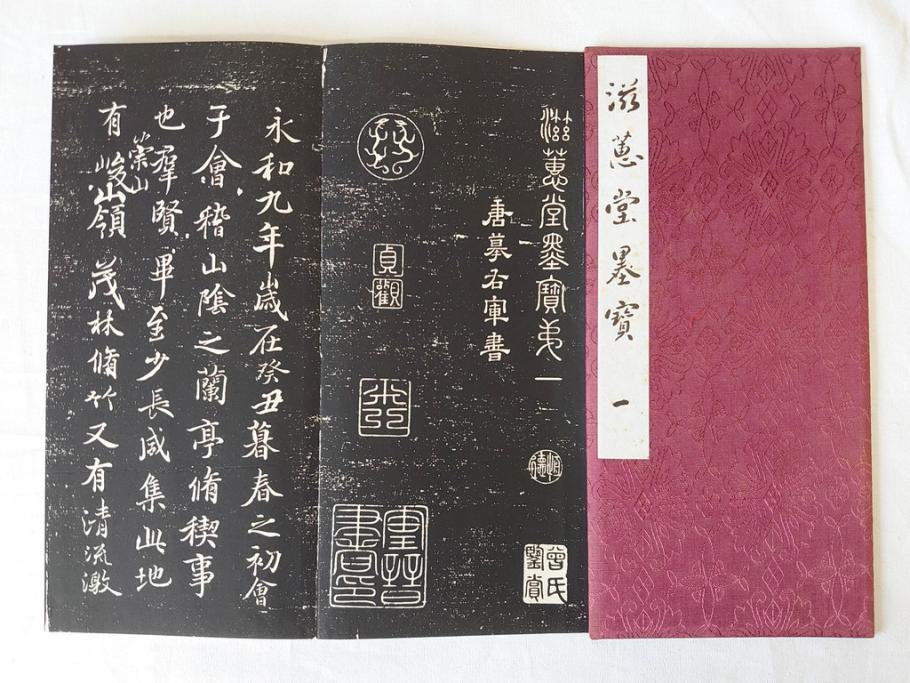 滋蕙堂墨寶 一
滋蕙堂墨寶弟一
唐摹右軍書
貞觀
曾氏
鑒賞
永和九年歲在癸丑暮春之初會
于會稽山陰之蘭亭脩稧事
也羣賢畢至少長咸集此地
有崇山峻領茂林脩竹又有清流激